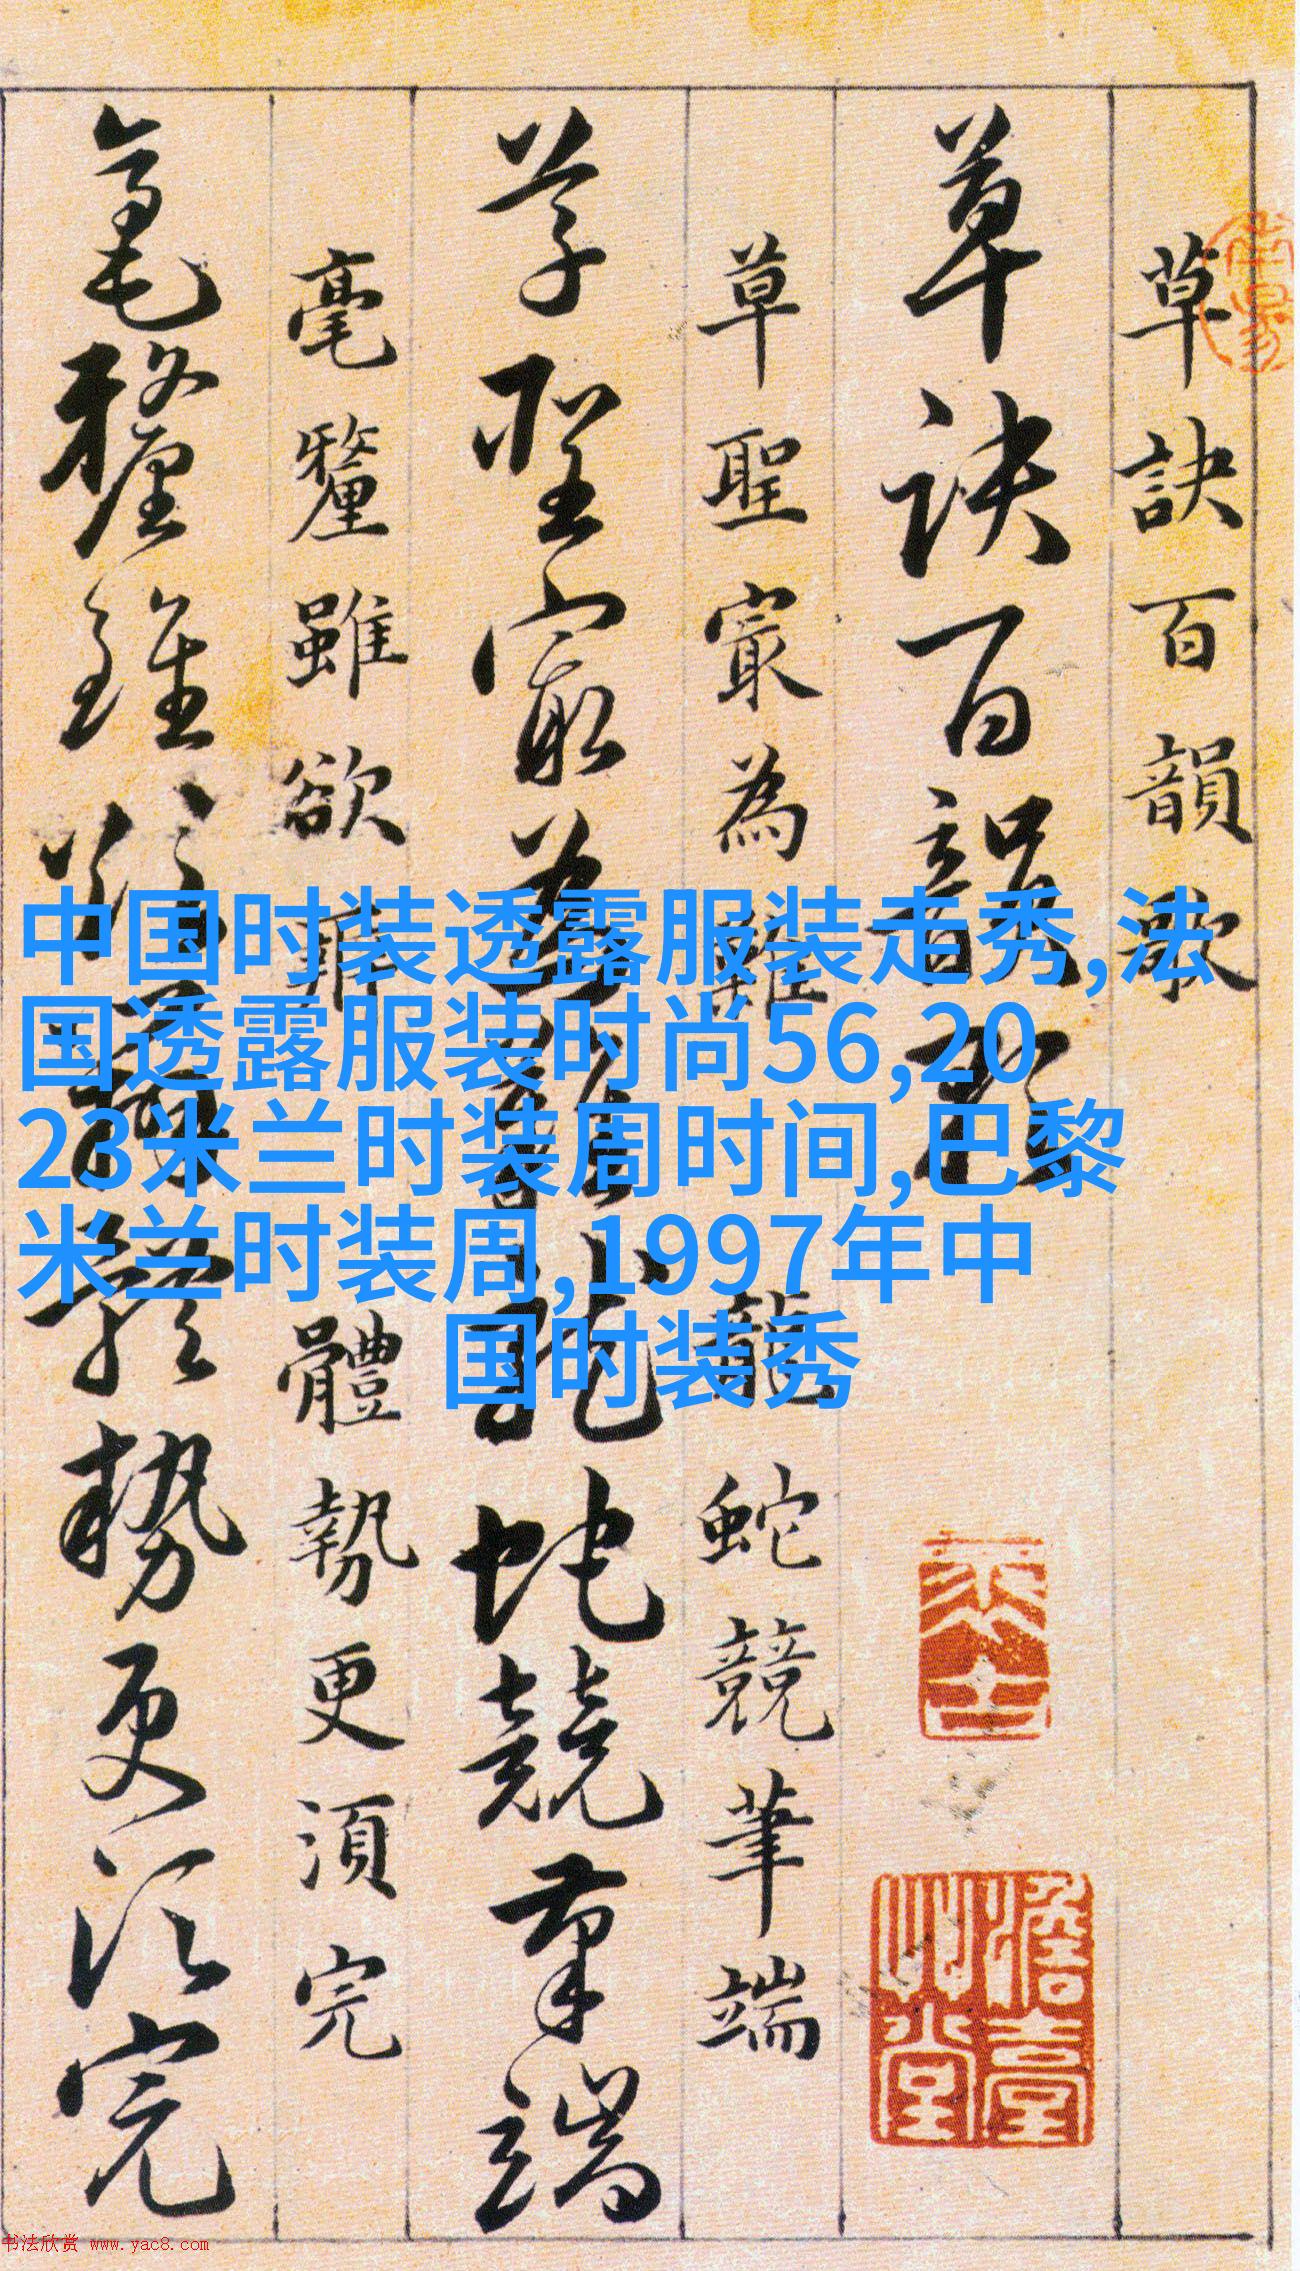 草訣百韻歌
草訣百韻歌
草聖㝡為難龍蛇競筆端
草聖㝡為難龍蛇競筆端
毫釐雖欲辨體勢更湏完
毫釐雖欲辨體勢更湏完
中国时装透露服装走秀,法
国透露服装时尚56,20
23米兰时装周时间,巴黎
米兰时装周,1997年中
国时装秀
书法欣赏 www.yac8.com